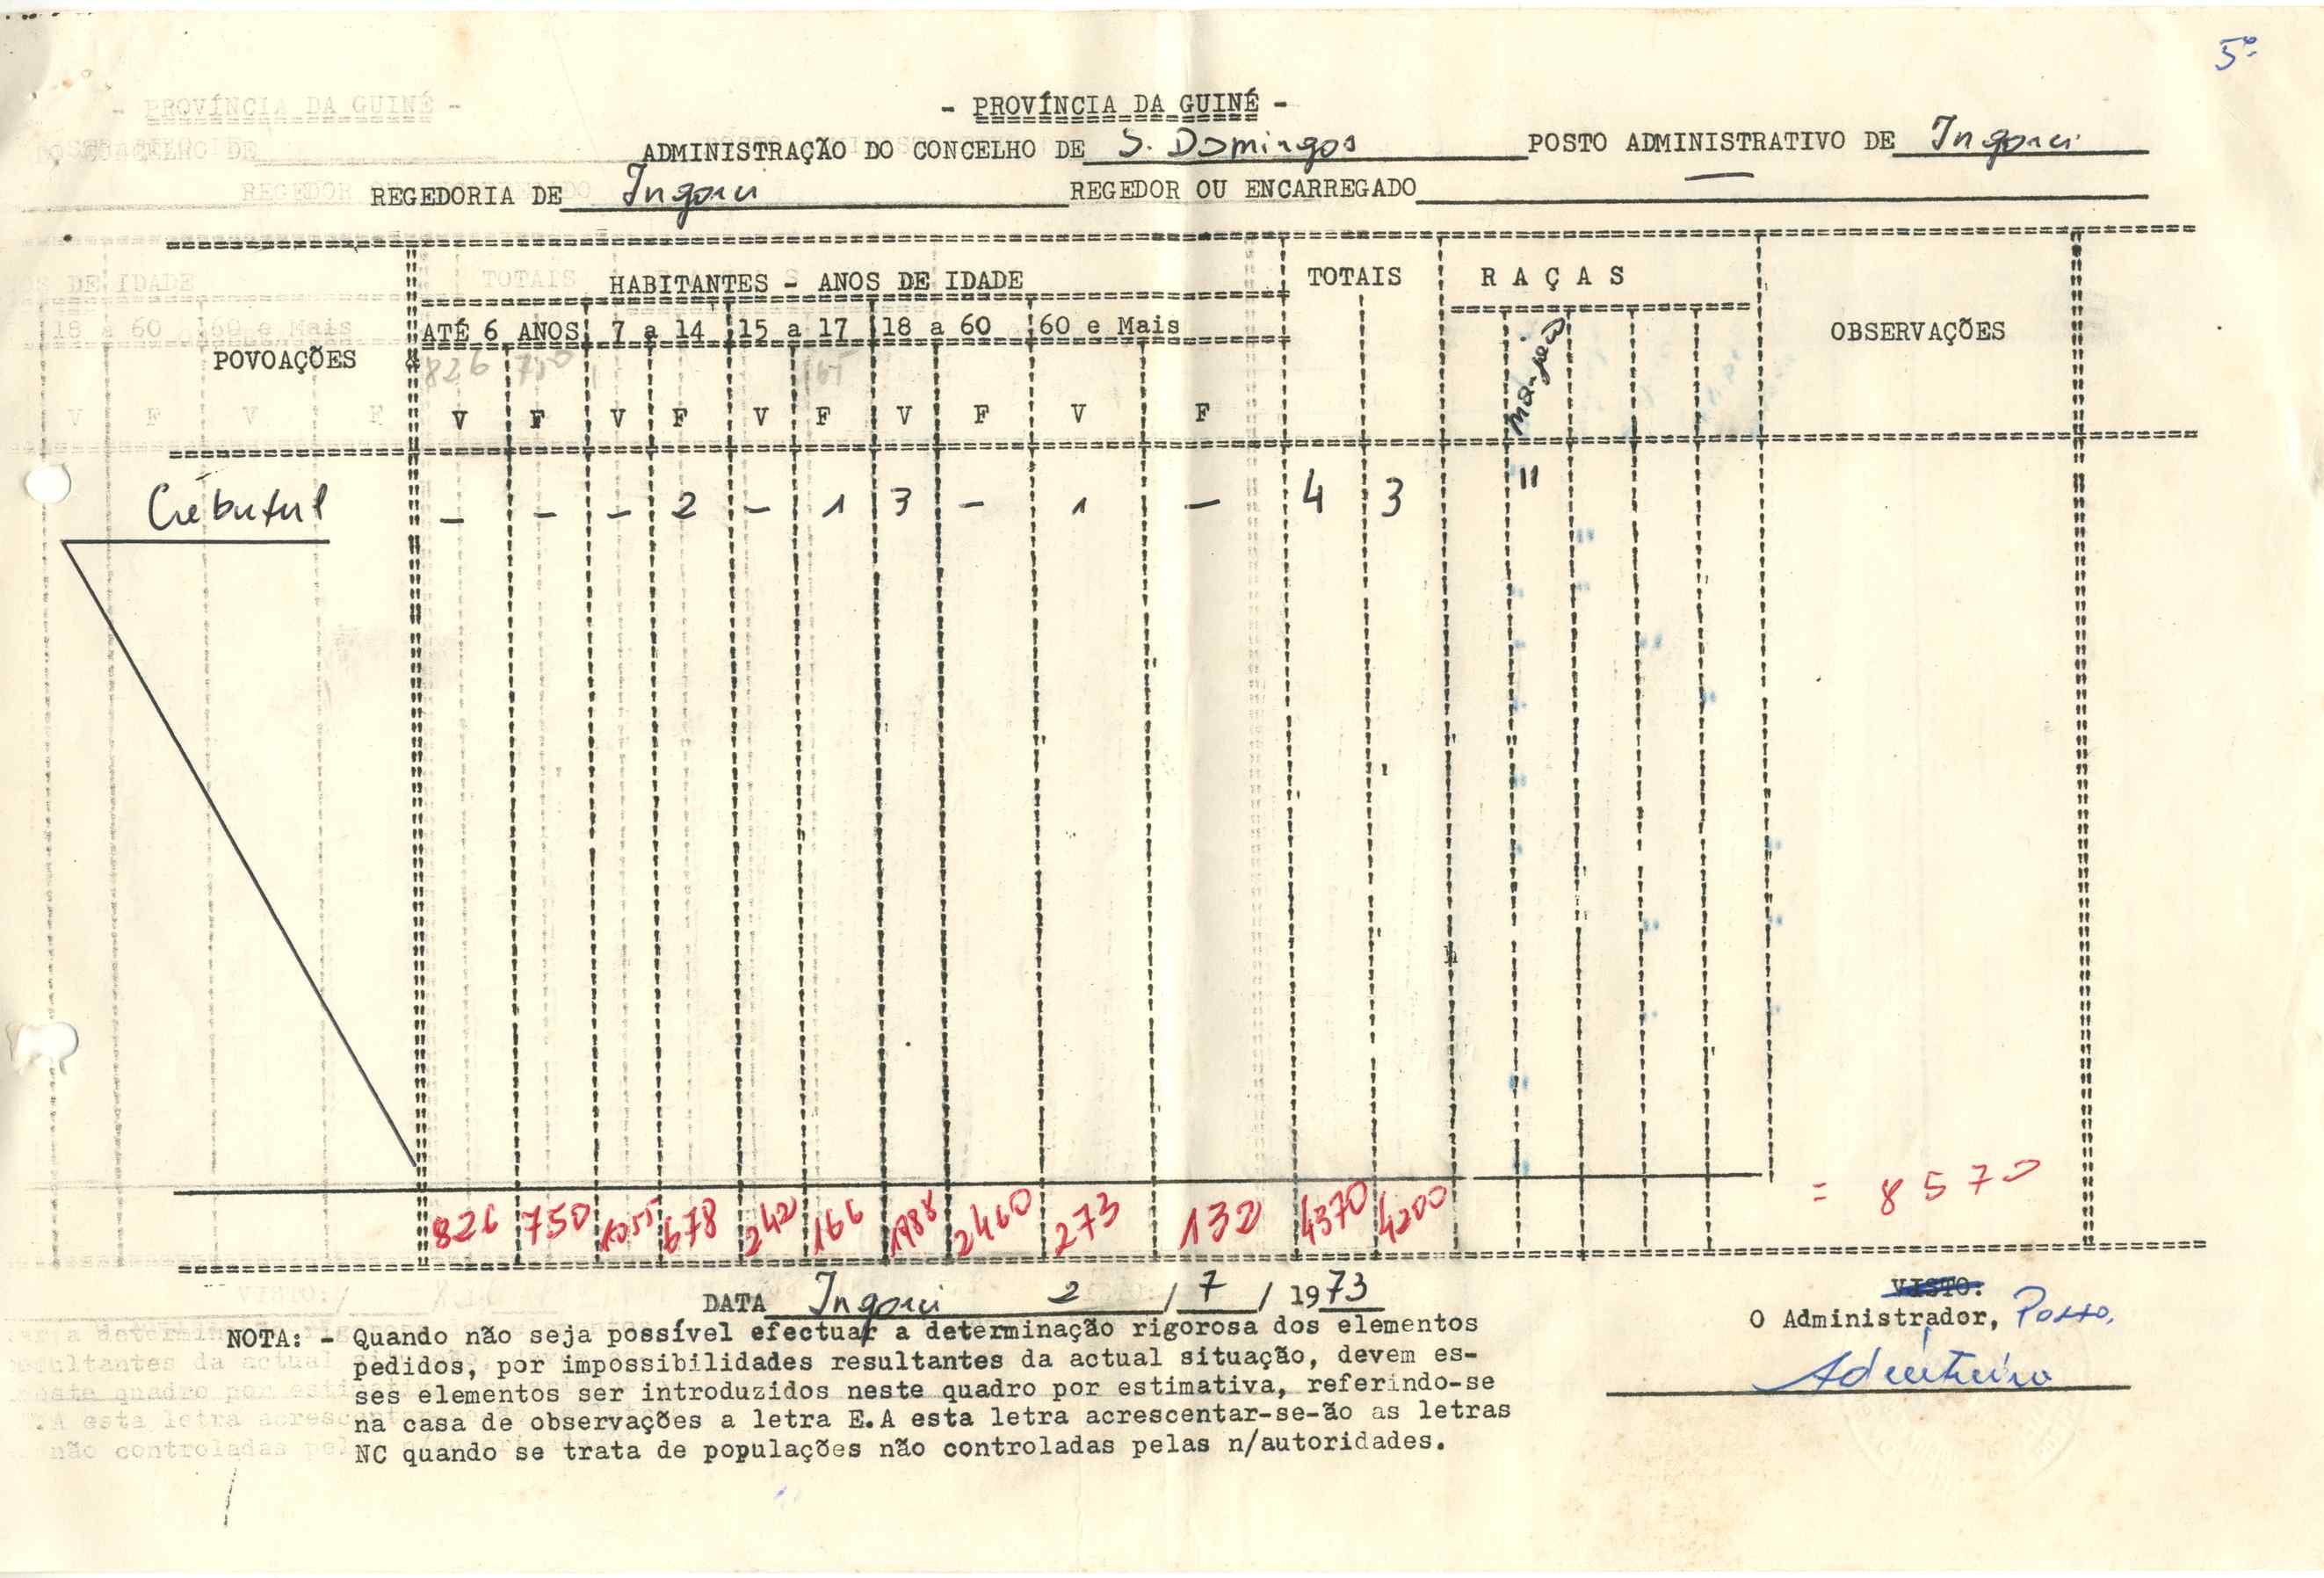 5º
- PROVÍNCIA DA GUINÉ -
ADMINISTRAÇÃO DO CONCELHO DE S. Domingos POSTO ADMINISTRATIVO DE Ingorei
REGEDORIA DE Ingorei REGEDOR OU ENCARREGADO —
HABITANTES - ANOS DE IDADE TOTAIS R A Ç A S
POVOAÇÕES ATÉ 6 ANOS 7 a 14 15 a 17 18 a 60 60 e Mais OBSERVAÇÕES
826 750
V F V F V F V F V F
- - - 2 - 1 3 - 1 - 4 3 "
826 750 1055 678 242 166 1988 2460 273 132 4370 4200 = 8570
DATA Ingorei 2 / 7 / 1973
VISTO:
O Administrador, Posto,
NOTA: - Quando não seja possível efectuar a determinação rigorosa dos elementos
pedidos, por impossibilidades resultantes da actual situação, devem es-
ses elementos ser introduzidos neste quadro por estimativa, referindo-se
na casa de observações a letra E.A esta letra acrescentar-se-ão as letras
NC quando se trata de populações não controladas pelas n/autoridades.